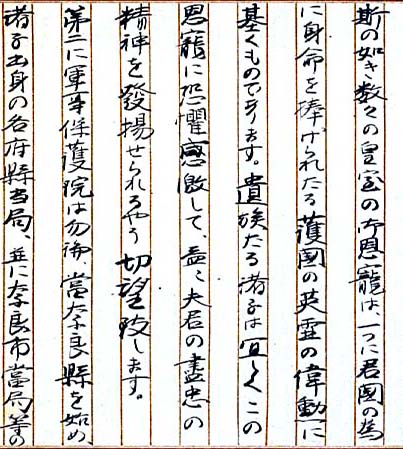 斯の如き数々の皇室の御恩寵は、一つに君國の為
に身命を捧げられたる護國の英霊の偉勳に
基くものであります。遺族たる諸子は宜しくこの
恩寵に恐懼感激して、益〻夫君の盡忠の
精神を發揚せられるやう切望致します。
第二に軍事保護院は勿論、當奈良縣を始め、
諸子出身の各府縣当局、並に奈良市當局等の